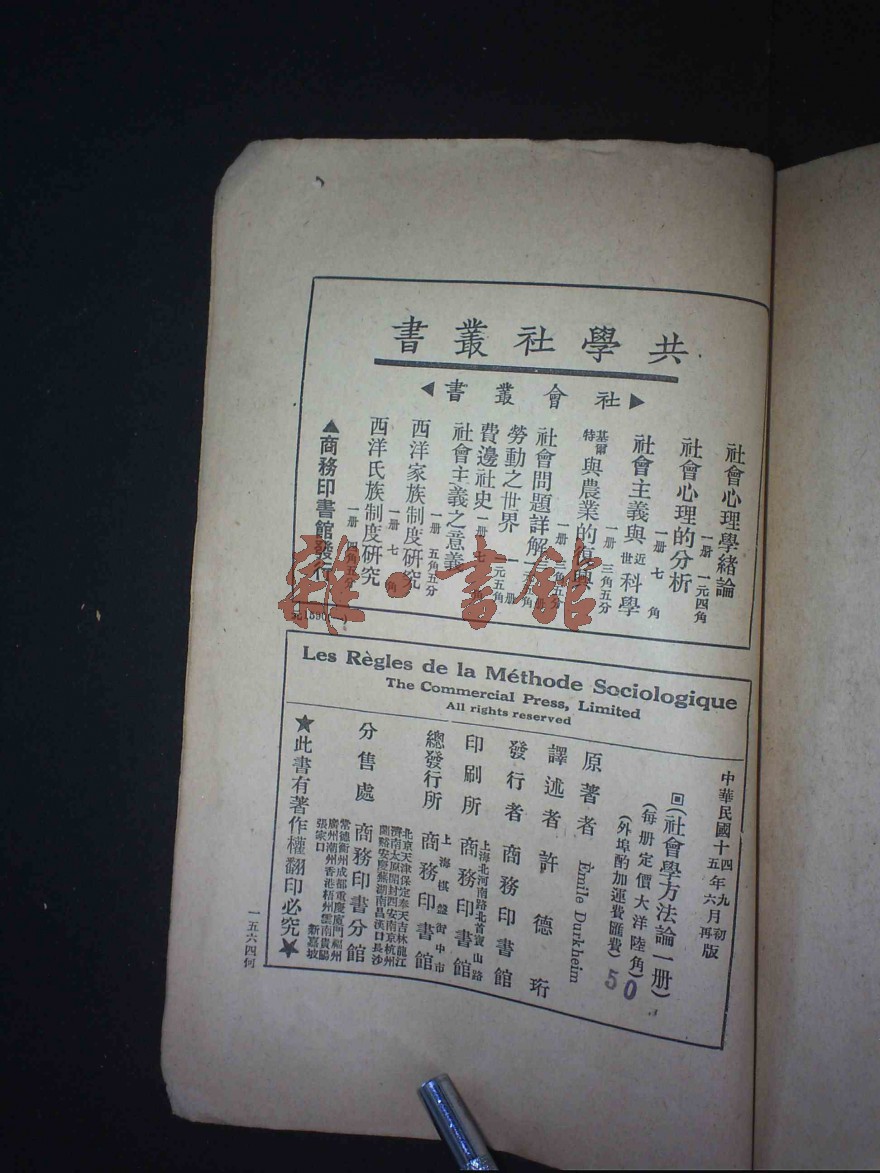 共學社叢書
▶社會叢書◀
社會心理學緒論
一册 一元四角
社會心理的分析
一册 七角
社會主義與近世科學
一册 三角五分
基爾特與農業的復興
一册 三角五分
社會問題詳解
勞動之世界
費邊社史
社會主義之意義
一册 五角五分
西洋家族制度研究
一册 七角
西洋氏族制度研究
一册 四角五分
▲商務印書館發行
雜·書館
Les Règles de la Méthode Sociologique
The Commercial Press, Limited
All rights reserved
中華民國十四年九月初版
十五年六月再版
回(社會學方法論一册)
(每册定價大洋陸角)
(外埠酌加運費匯費)
50
原著者 Émile Durkheim
譯述者 許德珩
發行者 商務印書館
上海北河南路北首寶山路
印刷所 商務印書館
上海棋盤街中市
總發行所 商務印書館
北京天津保定奉天吉林龍江
濟南太原開封西安南京杭州
蘭谿安慶蕪湖南昌漢口長沙
分售處 商務印書分館
常德衡州成都重慶廈門福州
廣州潮州香港梧州雲南貴陽
張家口 新嘉坡
★此書有著作權翻印必究★
一五六四何